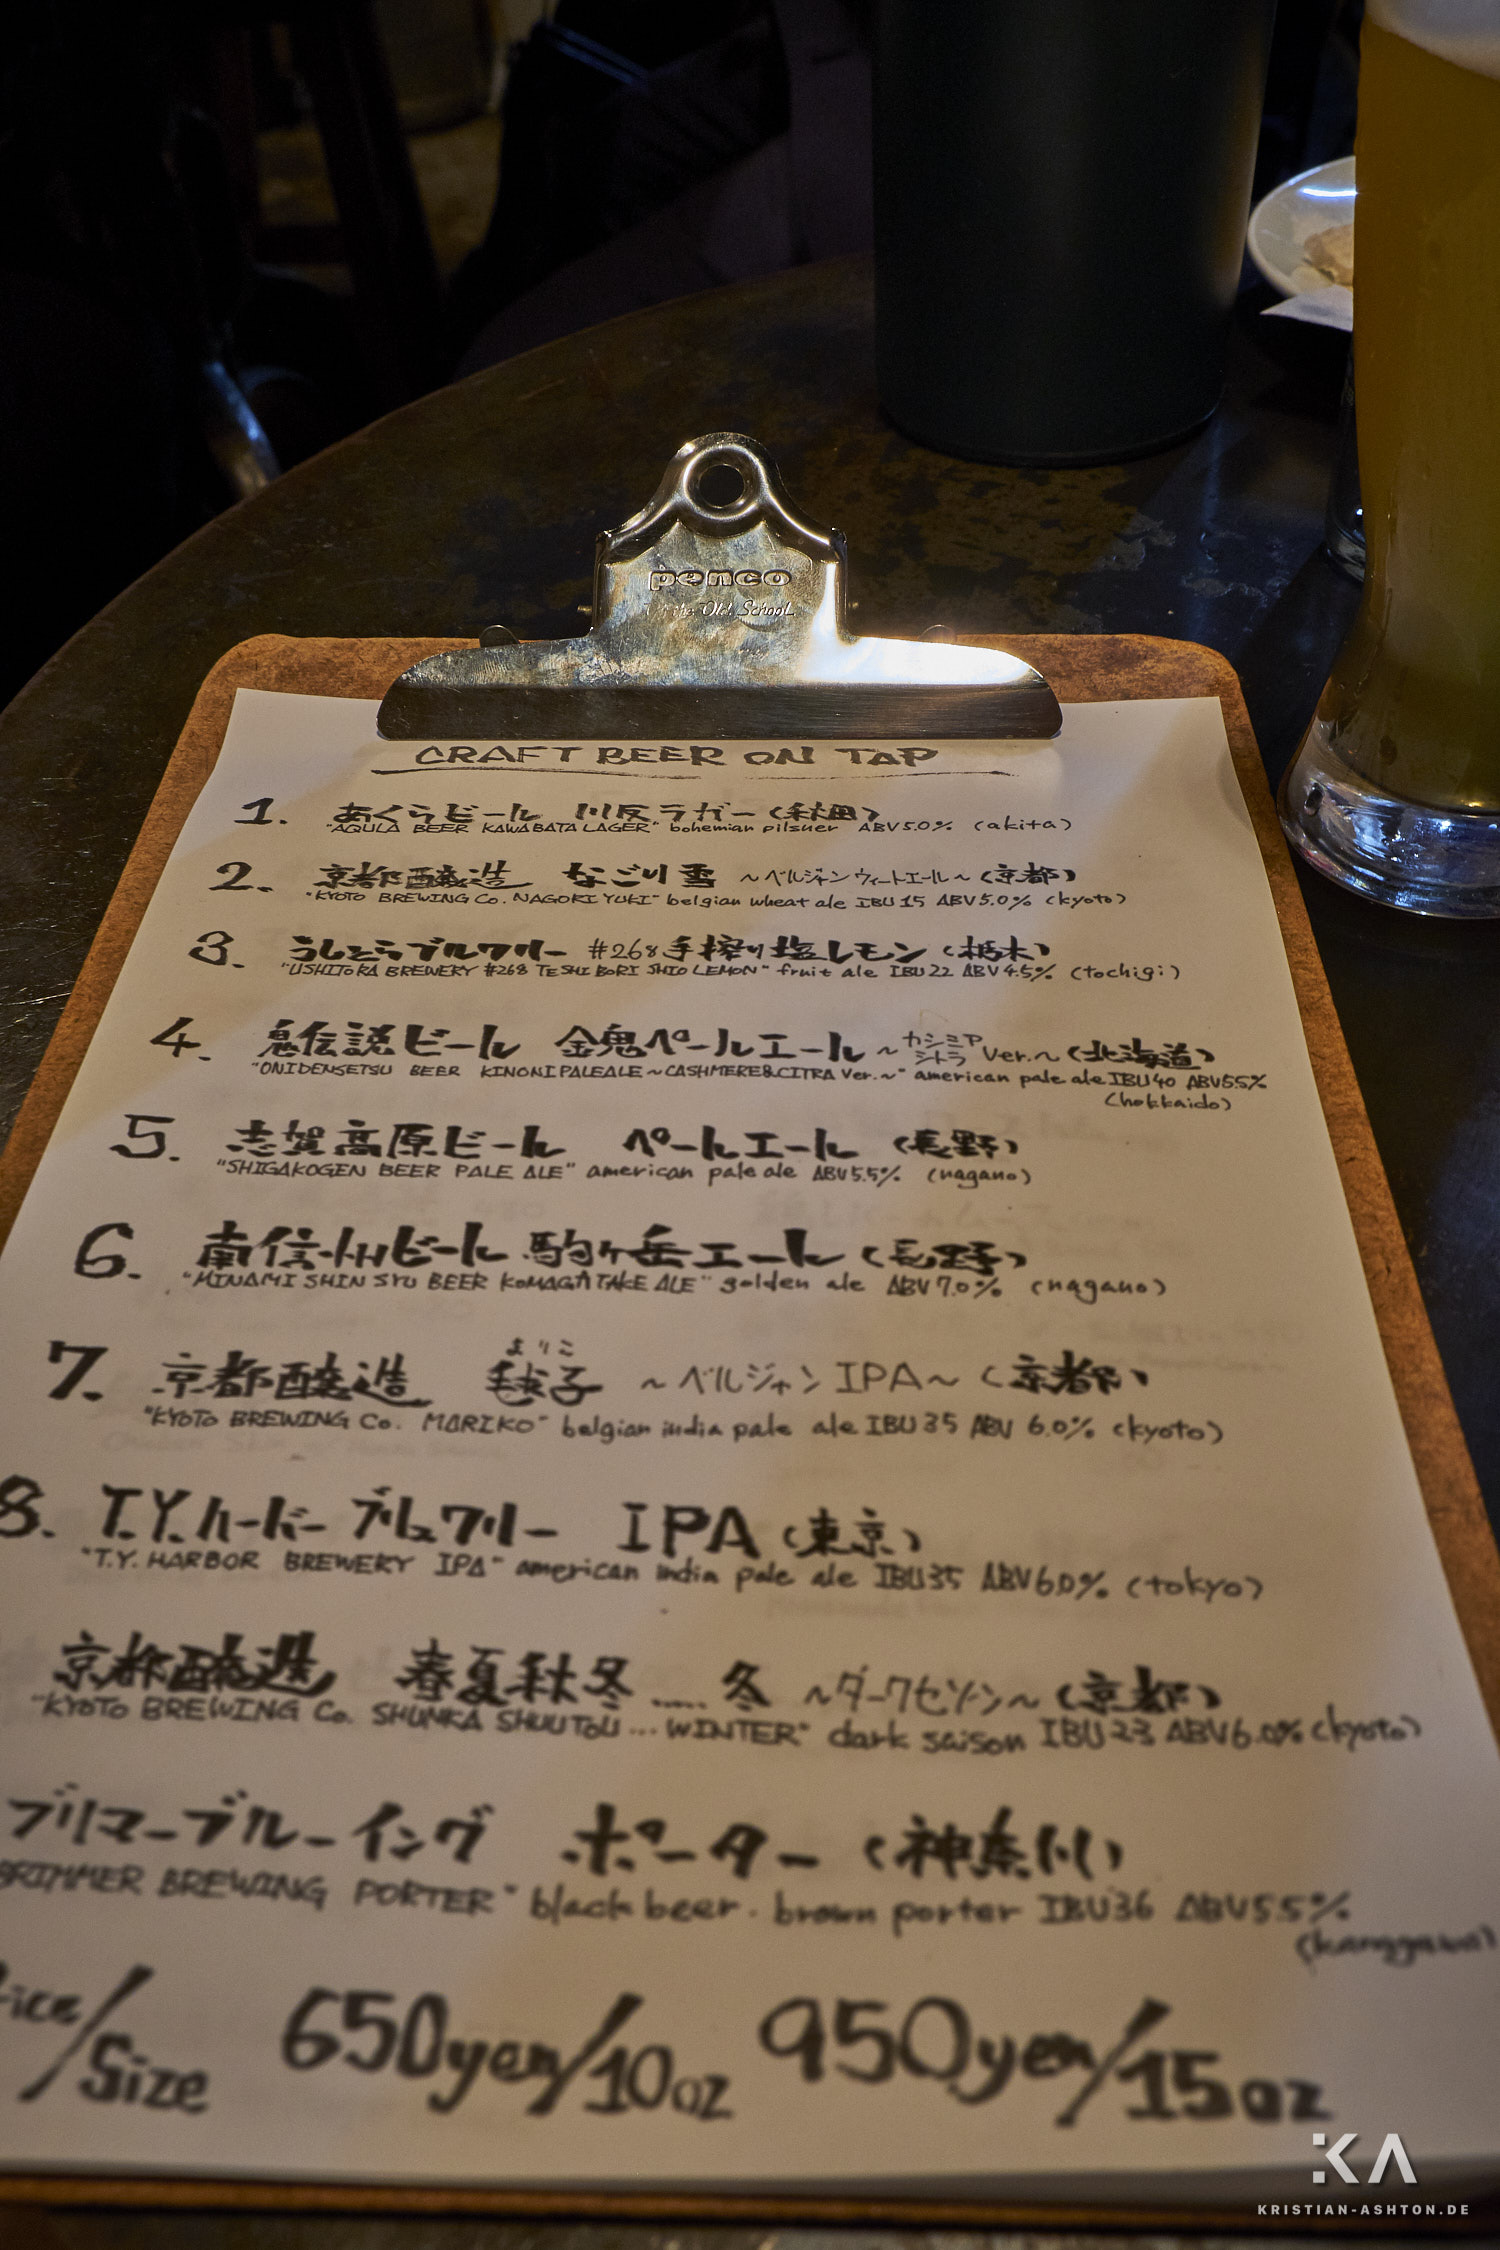 penco
Old School
CRAFT BEER ON TAP
1. あくらビール 川反ラガー（秋田）
"AQULA BEER KAWABATA LAGER" bohemian pilsner ABV5.0% (akita)
2. 京都醸造 なごり雪 ～ベルジャンウィートエール～（京都）
"KYOTO BREWING Co. NAGORI YUKI" belgian wheat ale IBU15 ABV5.0% (kyoto)
3. うしとらブルワリー #268手搾り塩レモン（栃木）
"USHITORA BREWERY #268 TESHIBORI SHIO LEMON" fruit ale IBU22 ABV4.5% (tochigi)
4. 鬼伝説ビール 金鬼ペールエール～カシミア シトラ Ver.～（北海道）
"ONIDENSETSU BEER KINONI PALEALE～CASHMERE&CITRA Ver.～" american pale ale IBU40 ABV5.5%
(hokkaido)
5. 志賀高原ビール ペールエール（長野）
"SHIGAKOGEN BEER PALE ALE" american pale ale ABV5.5% (nagano)
6. 南信州ビール 駒ヶ岳エール（長野）
"MINAMI SHINSYU BEER KOMAGATAKE ALE" golden ale ABV7.0% (nagano)
まりこ
7. 京都醸造 毬子 ～ベルジャンIPA～（京都）
"KYOTO BREWING Co. MARIKO" belgian india pale ale IBU35 ABV 6.0% (kyoto)
8. T.Y.ハーバーブルュワリー IPA（東京）
"T.Y. HARBOR BREWERY IPA" american india pale ale IBU35 ABV6.0% (tokyo)
京都醸造 春夏秋冬......冬 ～ダークセゾン～（京都）
"KYOTO BREWING Co. SHUNKA SHUUTOU...WINTER" dark saison IBU23 ABV6.0% (kyoto)
ブリマーブルーイング ポーター（神奈川）
BRIMMER BREWING PORTER" black beer. brown porter IBU36 ABV5.5%
/Size 650yen/10oz 950yen/15oz
KA
KRISTIAN-ASHTON.DE